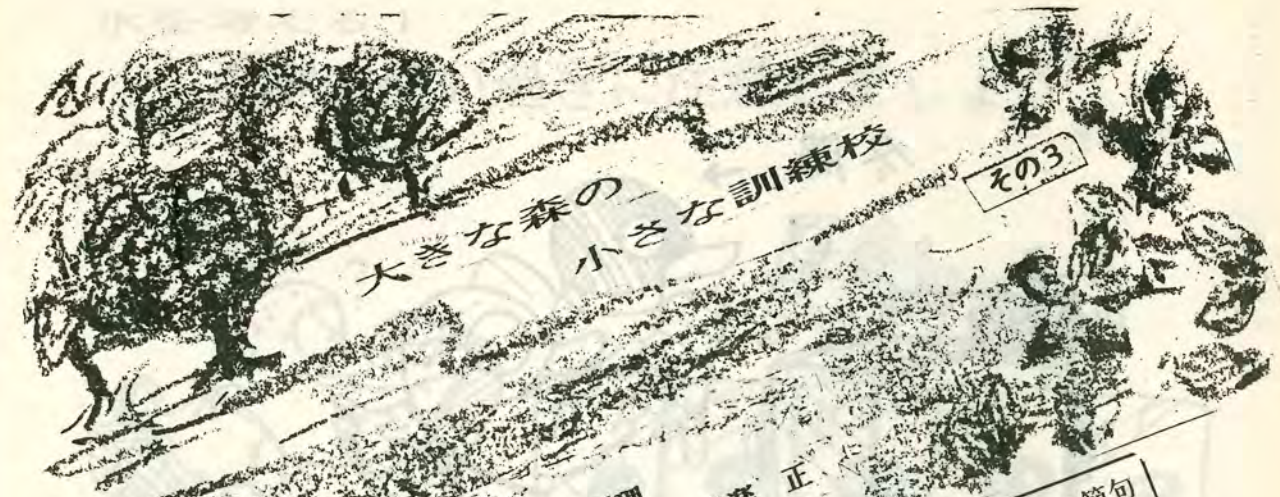 大きな森の
小さな訓練校
その3
正